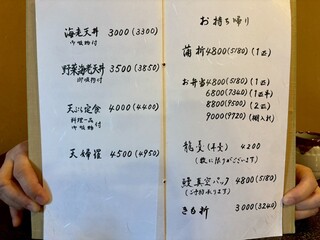 海老天丼 3000(3300)
吸物付
野菜海老天丼 3500(3850)
吸物付
天ぷら定食 4000(4400)
料理一品
吸物付
天婦羅 4500(4950)
お持ち帰り
蒲折 4800(5180) (1匹)
お弁当 4800(5180) (1匹)
6800(7340) (1匹半)
8800(9500) (2匹)
9000(9720) (棚入れ)
4200
(数に限りがございます)
鰻真空パック 4800(5180)
きも折 3000(3240)